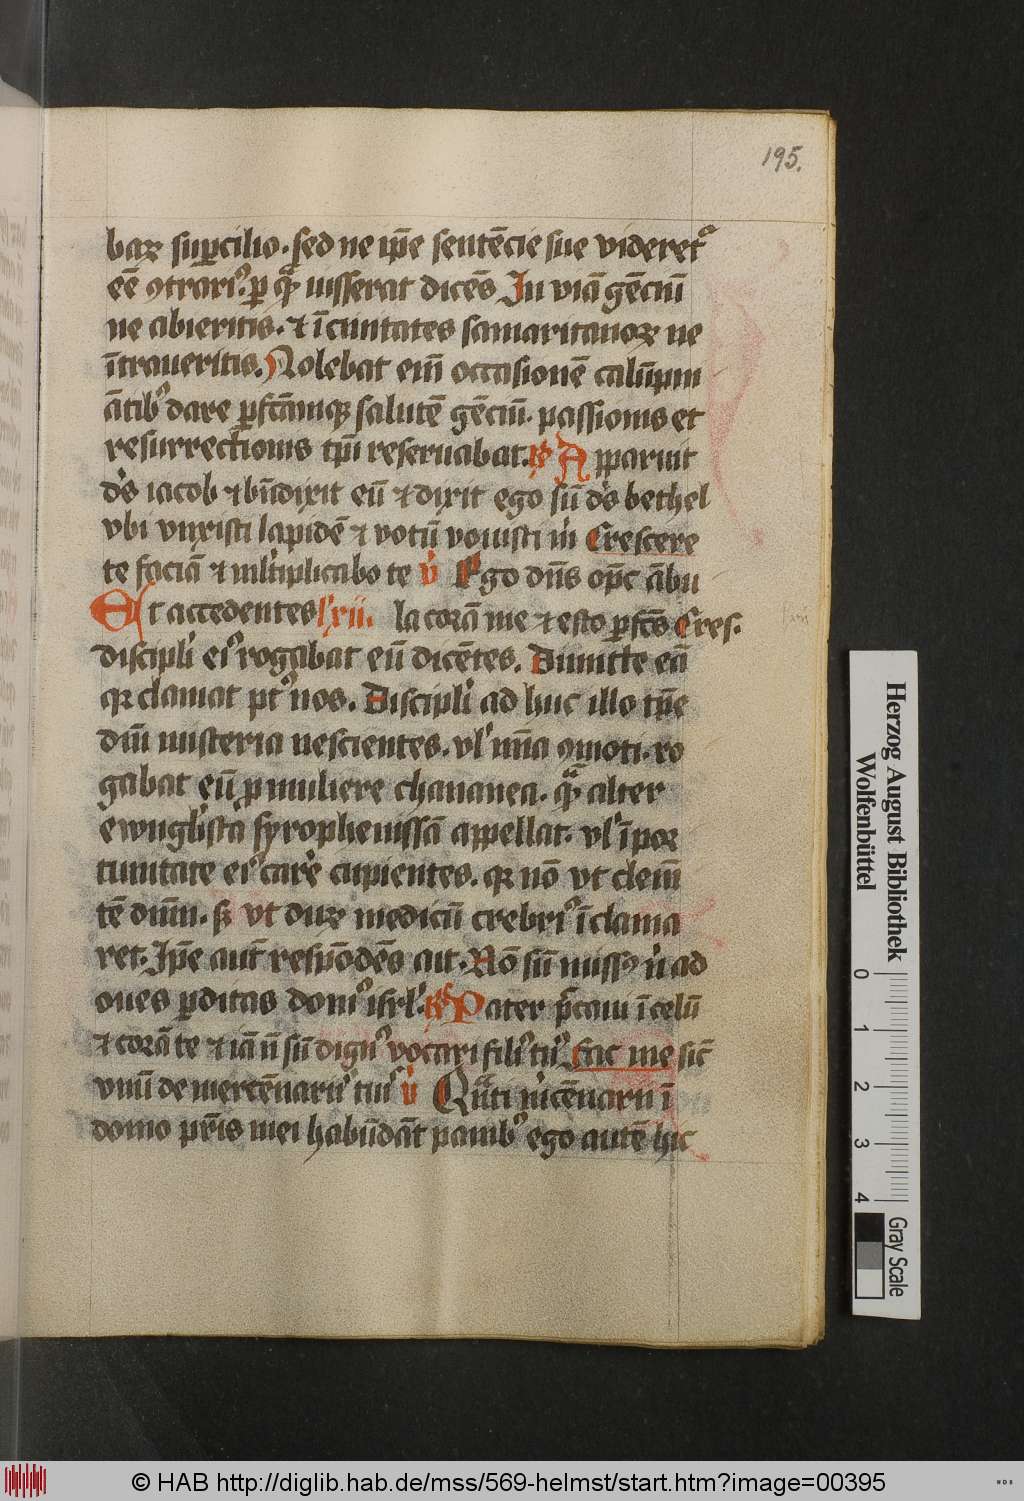 195.
baꝛ suꝑcilio. sed ne ip̄e sentēcie sue videretᷣ
eē ꝯtrariꝰ. ꝑ qᷓ iusserat dicēs In viā gēciū
ne abieritis. ⁊ ī ciuitates samaritanoꝝ ne
ītraueritis. Nolebat em̄ occasionē calūpni
ātibꝰ dare ꝑfc̄amqꝫ salutē gēciū. passionis et
resurrectionis tp̄i reseruabat. ℞ Apparuit
dˢ iacob ⁊ bn̄dixit eū ⁊ dixit ego sū dˢ bethel
vbi vnxisti lapidē ⁊ votū vouisti m̄ Crescere
te faciā ⁊ ml̄tiplicabo te v̓ Ego dn̄s op̄c ābu
Et accedentes lxii. la corā me ⁊ esto ꝑfc̄s Cres.
discipl̓i eiꝰ rogabāt eū dicētes. Dimitte eā
qꝛ clamat ptꝰ nos. Discipl̓i ad huc illo tp̄e
dn̄i misteria nescientes. vl̓ mīa ꝯmoti. ro
gabāt eū ꝑ muliere chananea. qᷓ alter
ewāgl̓ista syrophenissā appellat. vl̓ īpor
tunitate eiꝰ care̓ cupientes. qꝛ nō vt clemē
tē dn̄m. sꝫ vt duꝝ medicū crebriꝰ īclama
ret. Ip̄e aut̄ respōdēs ait. Nō sū missꝰ n̓ ad
oues ꝑditas domꝰ isrl̓. ℞ Pater p̄caui ī celū
⁊ corā te ⁊ iā n̄ sū dignꝰ vocari filiꝰ tuꝰ Fac me sic̄
vnū de mercēnariis tuis v̓ Quāti m̓cēnarii ī
domo pr̄is mei habūdāt panibꝰ ego autē hic
Herzog August Bibliothek
Wolfenbüttel
0 1 2 3 4
Gray Scale
© HAB http://diglib.hab.de/mss/569-helmst/start.htm?image=00395